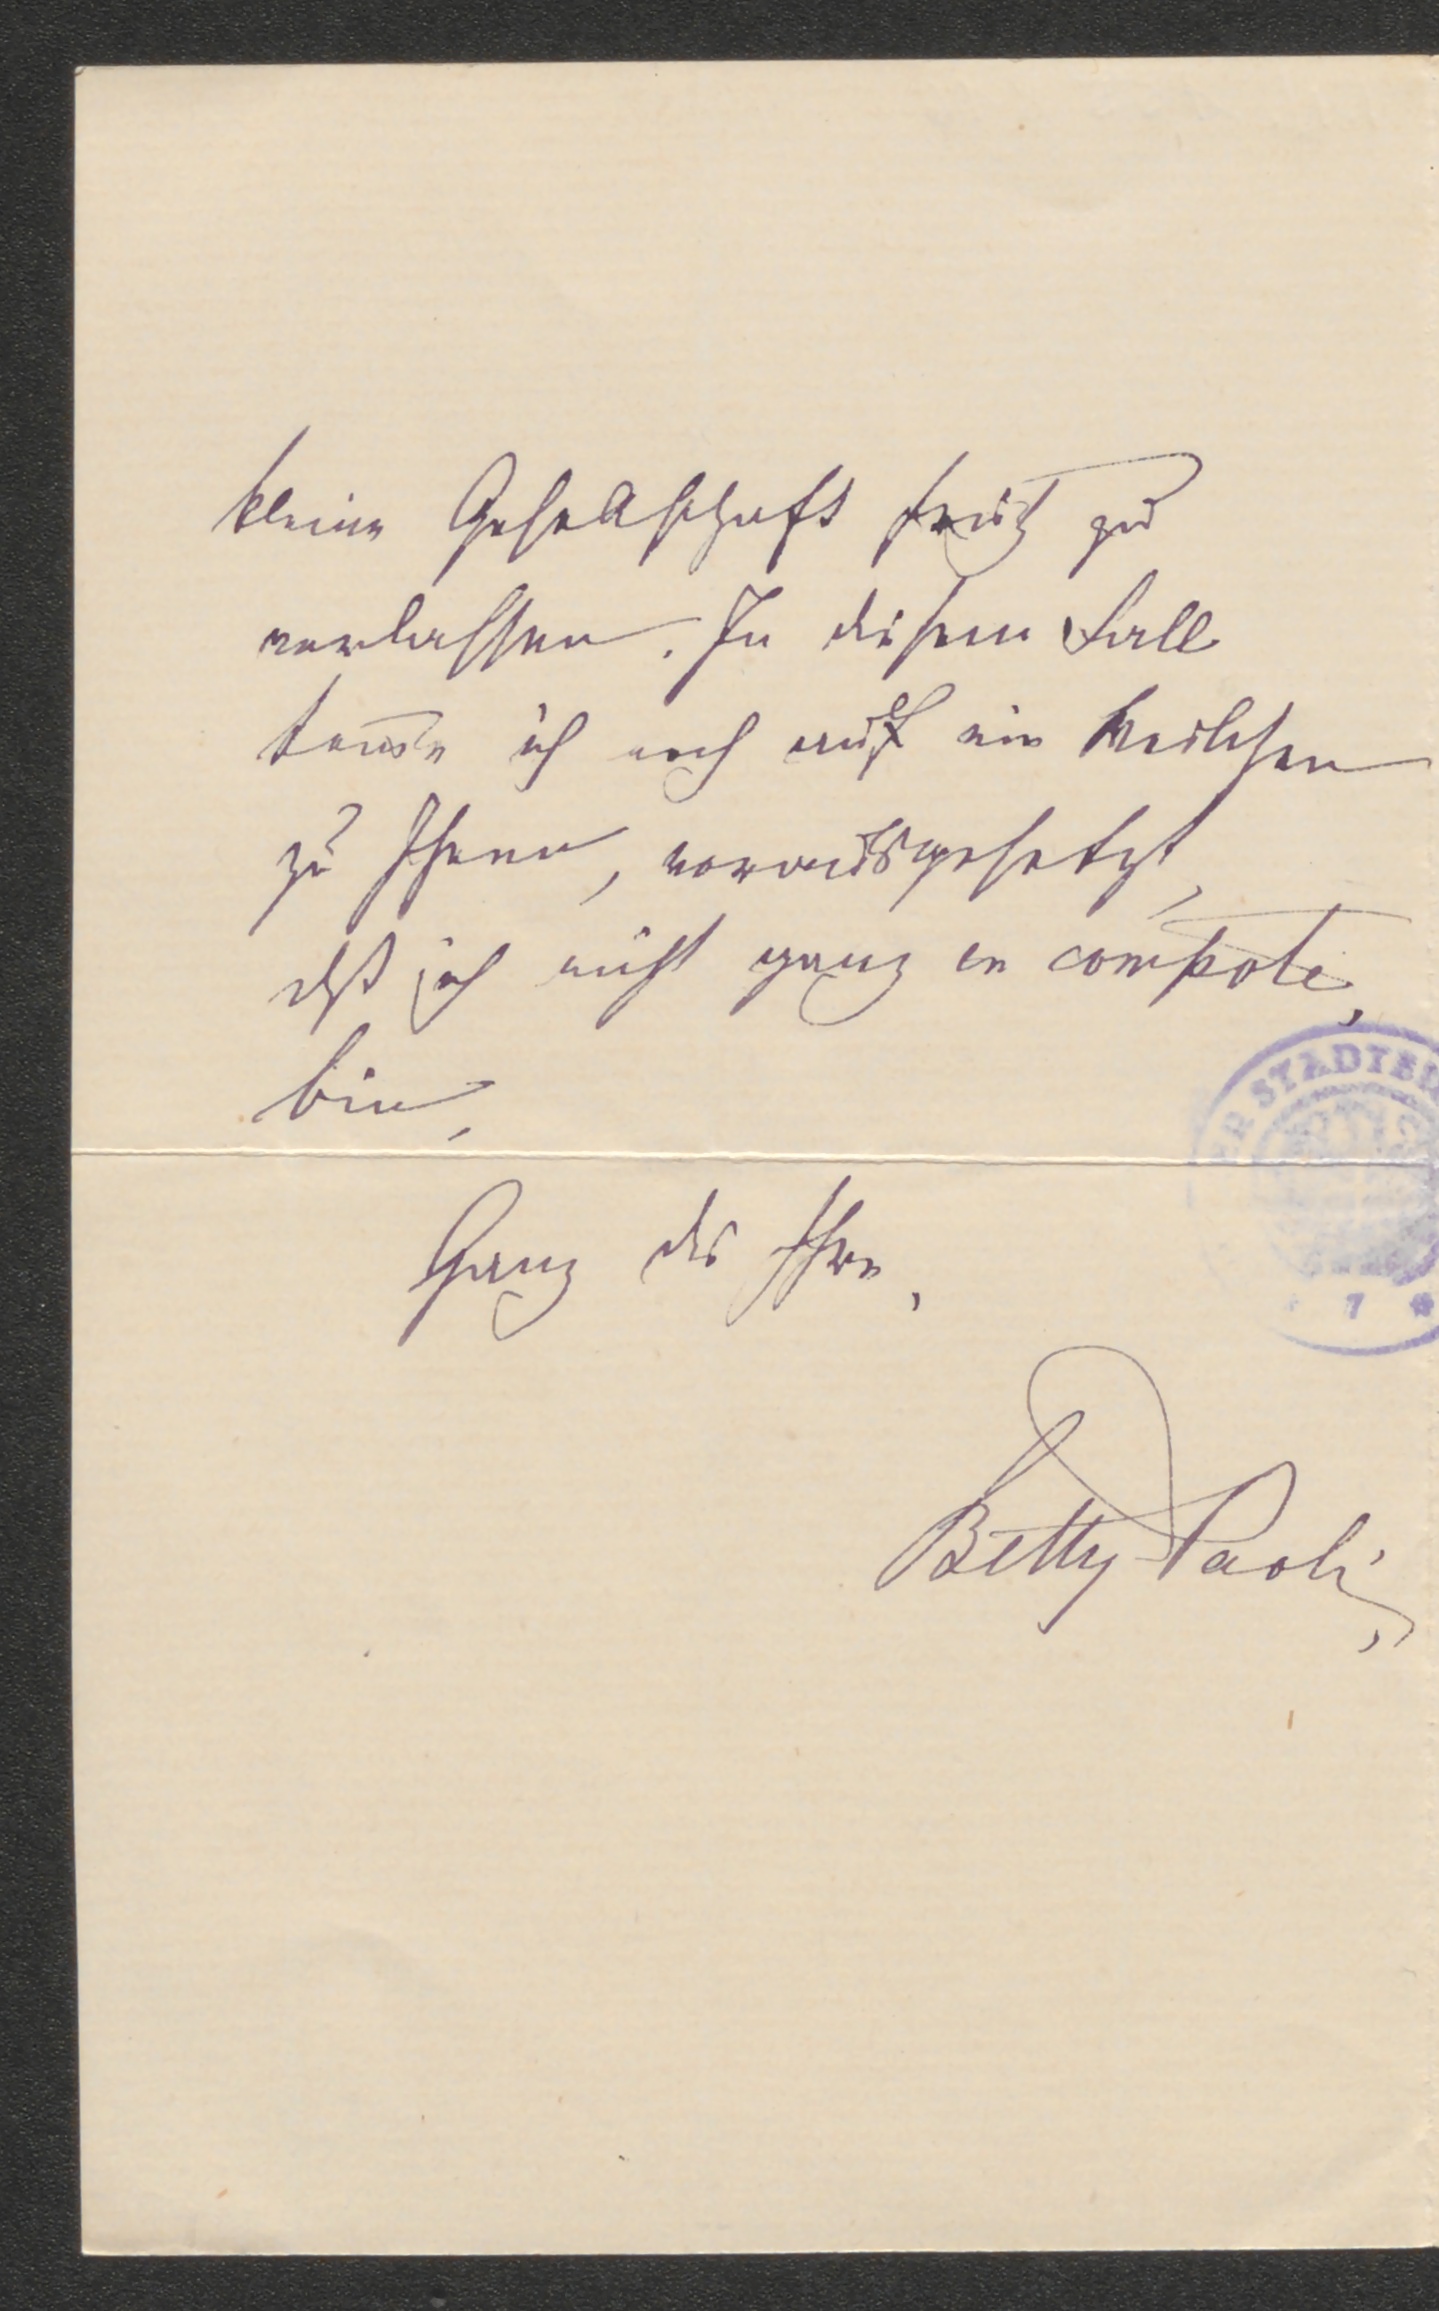 kleine Gesellschaft frühz zu
verlassen. In diesem Fall
komme ich noch auf ein Weilchen
zu Ihnen, vorausgesetzt,
dß ich nicht ganz en compote,
bin,
Ganz die Ihre,
Betty Paoli,
ER STADTBI
7